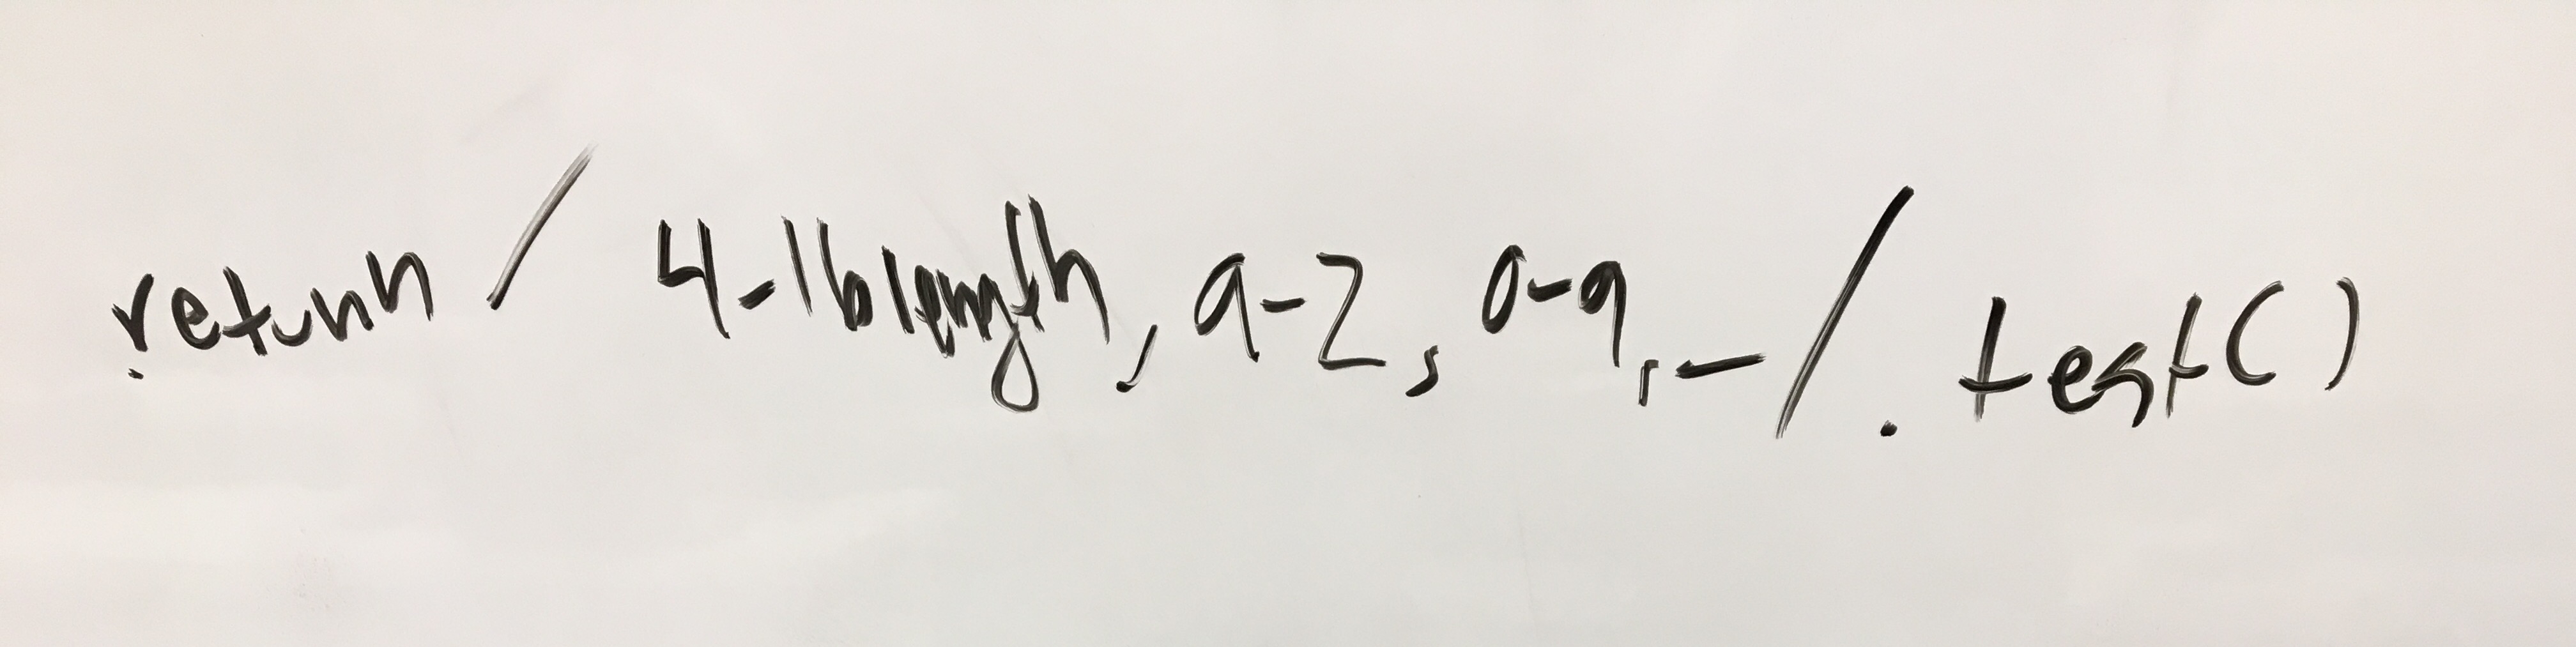 return / 4-16 length, a-z, 0-9, _ /. test( )